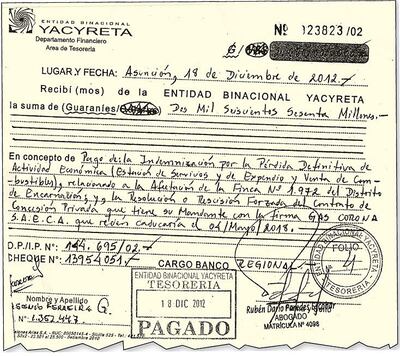 ENTIDAD BINACIONAL
YACYRETA
Departamento Financiero
Area de Tesorería
Nº 123823/02
G/
LUGAR Y FECHA: Asunción, 18 de Diciembre de 2012.-
Recibí (mos) de la ENTIDAD BINACIONAL YACYRETA
la suma de (Guaraníes/ Dos Mil Sescientos Sesenta Millones.-
En concepto de Pago de la Indemnización por la Pérdida Definitiva de
Actividad Económica (Estación de Servivos y de Expendio y Venta de Com-
bustibles), relacionado a la Afectación de la Finca Nº 1.972 del Distrito
de Encarnación; y la Resolución o Rescisión Forzada del Contrato de
Concesión Privada que tiene su Mandante con la firma GAS CORONA
S.A.E.C.A. que recién caducaría el 01/Mayo/2018.-
O.P./I.P. Nº: 144.695/02.-
CHEQUE Nº: 13954051.- CARGO BANCO REGIONAL.-
ENTIDAD BINACIONAL YACYRETA
TESORERIA
18 DIC 2012
PAGADO
ENTIDAD BINACIONAL YACYRETA
FOLIO
4
TESORERIA
Nombre y Apellido
FERREIRA G.
Nº 1.352.447
Rubén Darío
ABOGADO
MATRICULA Nº 4098